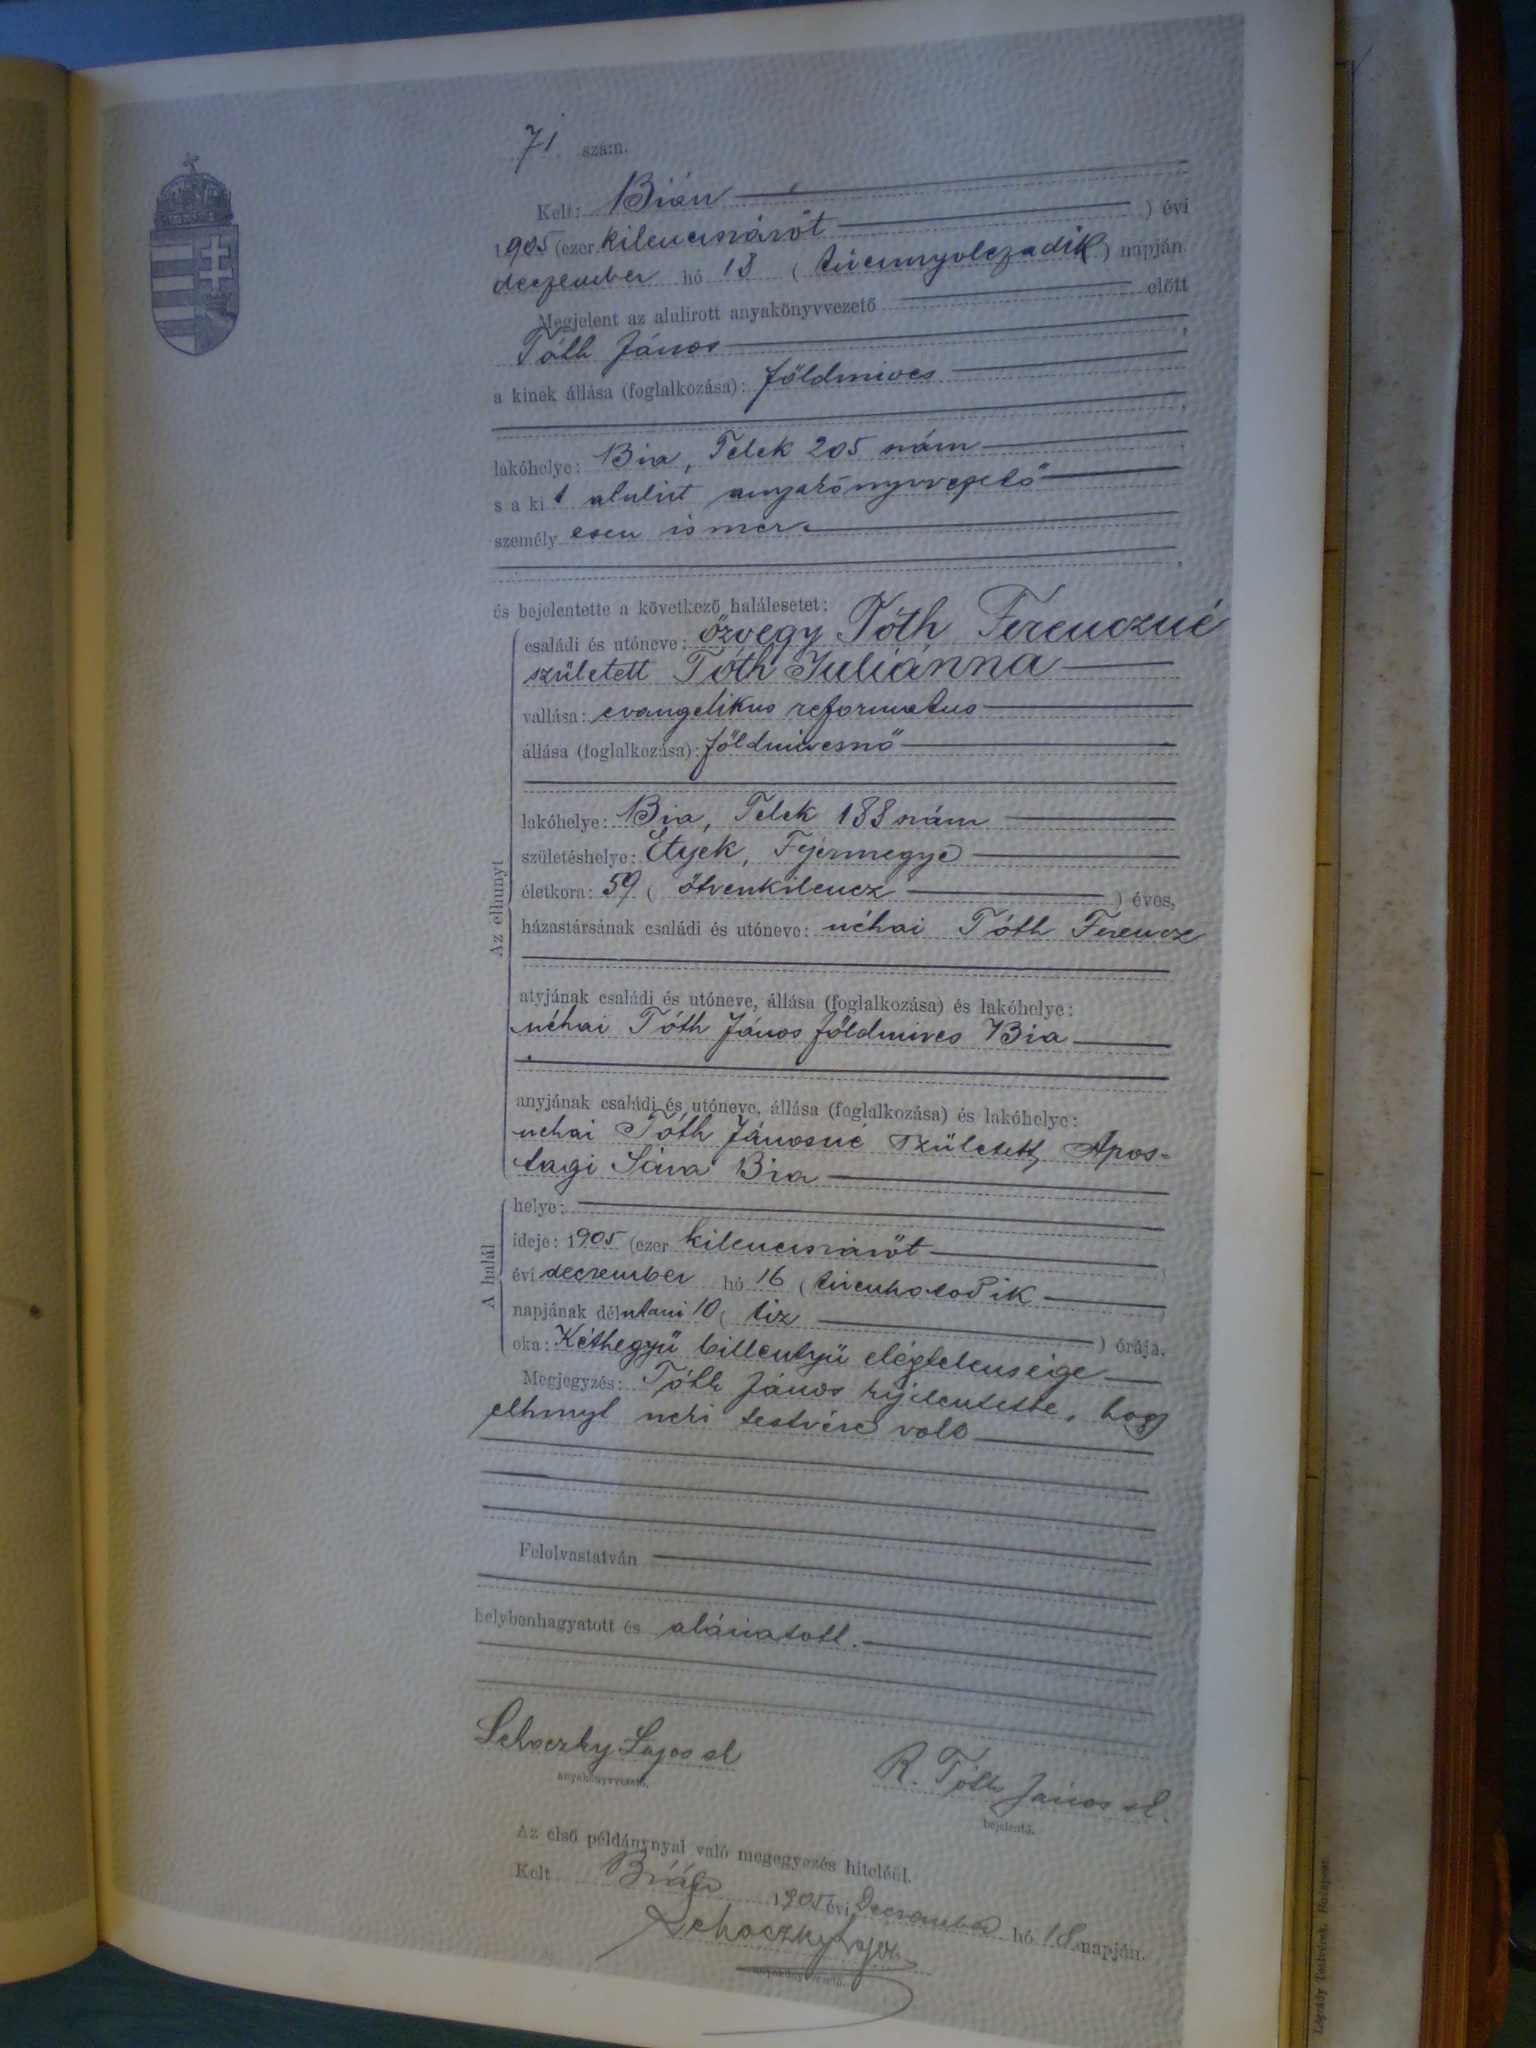 71 szám.
Kelt: Bián
1905 (ezer kilencszázöt ) évi
deczember hó 18 (tizennyolczadik) napján
Megjelent az alulirott anyakönyvvezető előtt
Tóth János
a kinek állása (foglalkozása): földmives
lakóhelye: Bia, Telek 205 szám
s a kit alulirt anyakönyvvezető
személyesen ismer.
és bejelentette a következő halálesetet:
Az elhunyt
családi és utóneve: özvegy Tóth Ferenczné
született Tóth Juliánna
vallása: evangelikus reformatus
állása (foglalkozása): földmivesnő
lakóhelye: Bia, Telek 188 szám
születéshelye: Etyek, Fejérmegye
életkora: 59 (ötvenkilencz ) éves,
házastársának családi és utóneve: néhai Tóth Ferencz
atyjának családi és utóneve, állása (foglalkozása) és lakóhelye:
néhai Tóth János földmives Bia
anyjának családi és utóneve, állása (foglalkozása) és lakóhelye:
néhai Tóth Jánosné született Apos-
tagi Sára Bia
A halál
helye:
ideje: 1905 (ezer kilencszázöt )
évi deczember hó 16 (tizenhatodik )
napjának délutani 10 (tiz ) órája.
oka: Kéthegyü billentyü elégtelensége
Megjegyzés: Tóth János kijelentette, hogy
elhunyt neki testvére volt
Felolvastatván
helybenhagyatott és aláiratott.
Schoczky Lajos sk
anyakönyvvezető.
R. Tóth János sk.
bejelentő.
Az első példánynyal való megegyezés hiteléül.
Kelt Bián 1905 évi December hó 18 napján.
Schoczky Lajos
anyakönyvvezető.
Légrády Testvérek, Budapest.